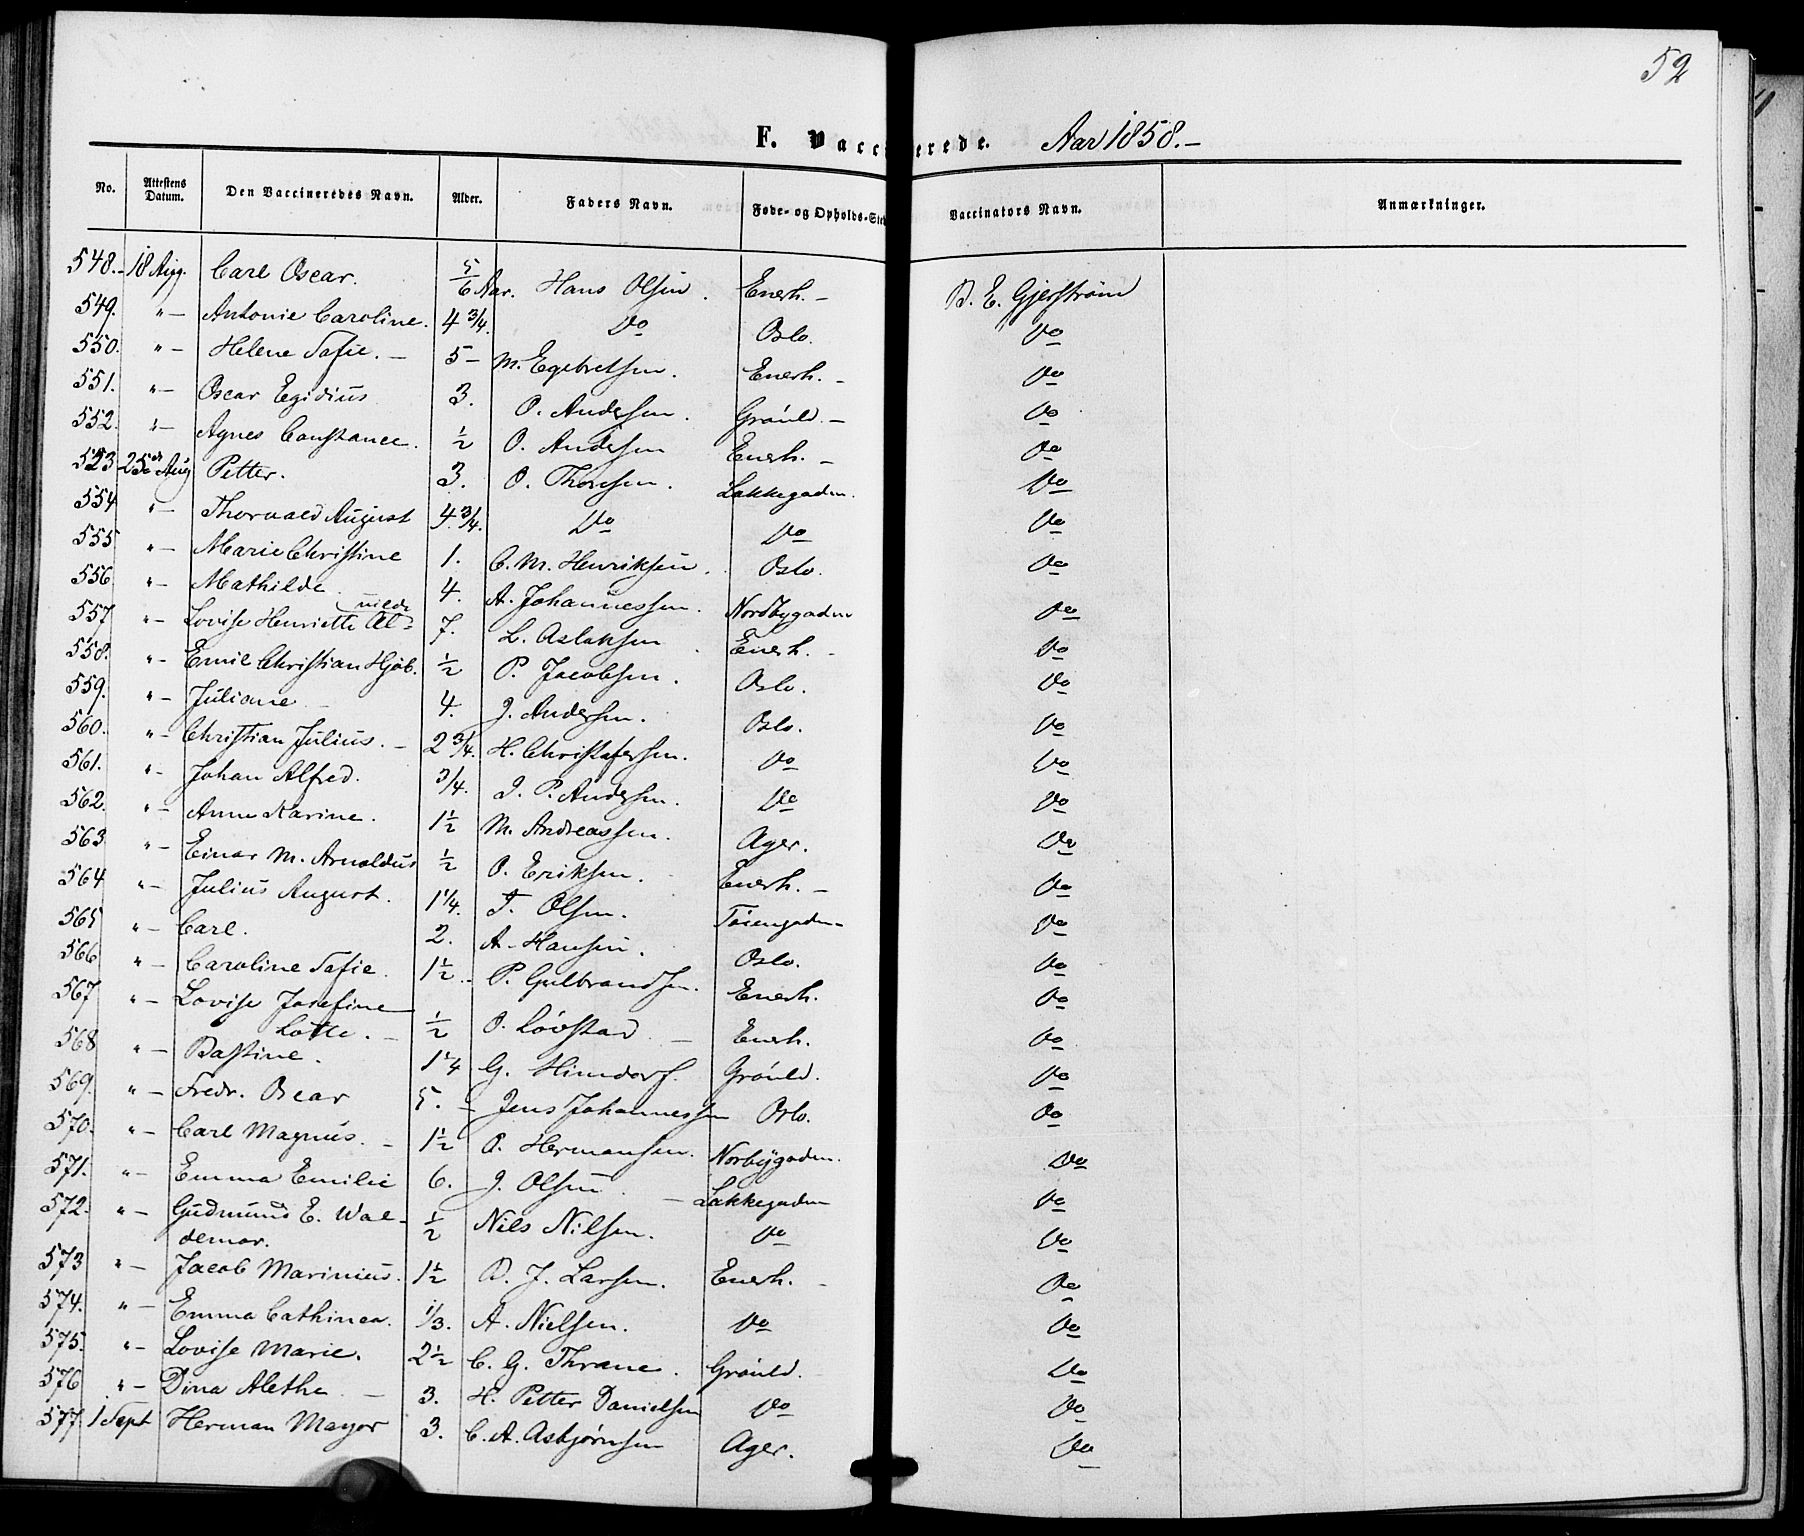 52
F. Vaccinerede. Aar 1858.-
No. Attestens Datum. Den Vaccineredes Navn. Alder. Faders Navn. Føde- og Opholds-Sted Vaccinators Navn. Anmærkninger.
548.- 18 Aug. Carl Oscar. 5/6 Aar. Hans Olsen. Enerh.- B. E. Gjerstrøm
549. "- Antonie Caroline. 4 3/4. Do Oslo. Do
550. "- Helene Sofie.- 5- M. Egebretsen. Enerh.- Do
551. "- Oscar Egidius 3. O. Andersen. Grønld.- Do
552. "- Agnes Constance. 1/2 O. Andersen Enerh.- Do
553 25de Aug Petter. 3. O. Thoresen. Lakkegaden. Do
554 "- Thorvald August 4 3/4. Do Do Do
555 "- Marie Christine 1. C. M. Henriksen. Oslo. Do
556 "- Mathilde. 4. A. Johannessen. Nordbygaden Do
557 "- Lovise Henriette Al=vilde 7. L. Aslaksen Enerh.- Do
558. "- Emil Christian Hjøb. 1/2 P. Jacobsen. Oslo. Do
559. "- Juliane- 4. J. Andersen. Oslo. Do
560. "- Christian Julius.- 2 3/4. H. Christofersen. Do Do
561. "- Johan Alfred. 3/4. J. P. Andersen. Do Do
562. "- Anne Karine. 1 1/2 M. Andreassen. Ager. Do
563 "- Einar M. Arnoldus 1/2 O. Eriksen. Enerh.- Do
564 "- Julius August. 1 1/4. T. Olsen. Tøiengaden- Do
565 "- Carl. 2. A. Hansen. Oslo. Do
566 "- Caroline Sofie. 1 1/2- P. Gulbrandsen. Enerh. Do
567 "- Lovise Josefine
Lotte.- 1/2 O. Løvstad- Enerh. Do
568 "- Bastine. 1 1/4 G. Himdorf. Grønld. Do
569. "- Fredr. Oscar 5.- Jens Johannessen Oslo. Do
570. "- Carl Magnus.- 1 1/2 P. Hermansen. Norbygaden. Do
571. "- Emma Emilie 6. J. Olsen- Lakkegaden Do
572. "- Gudmund E. Wal-
demar. 1/2 Nils Nilsen. Do Do
573 "- Jacob Marinius. 1 1/2 D. J. Larsen. Enerh.- Do
574. "- Emma Cathinca. 1/3. A. Nielsen. Do Do
575. "- Lovise Marie. 2 1/2 C. G. Thrane. Grønld. Do
576 "- Dina Alethe- 3. H. Petter Danielsen Do Do
577. 1 Sept Herman Mayor 3. C. A. Asbjørnsen Ager. Do